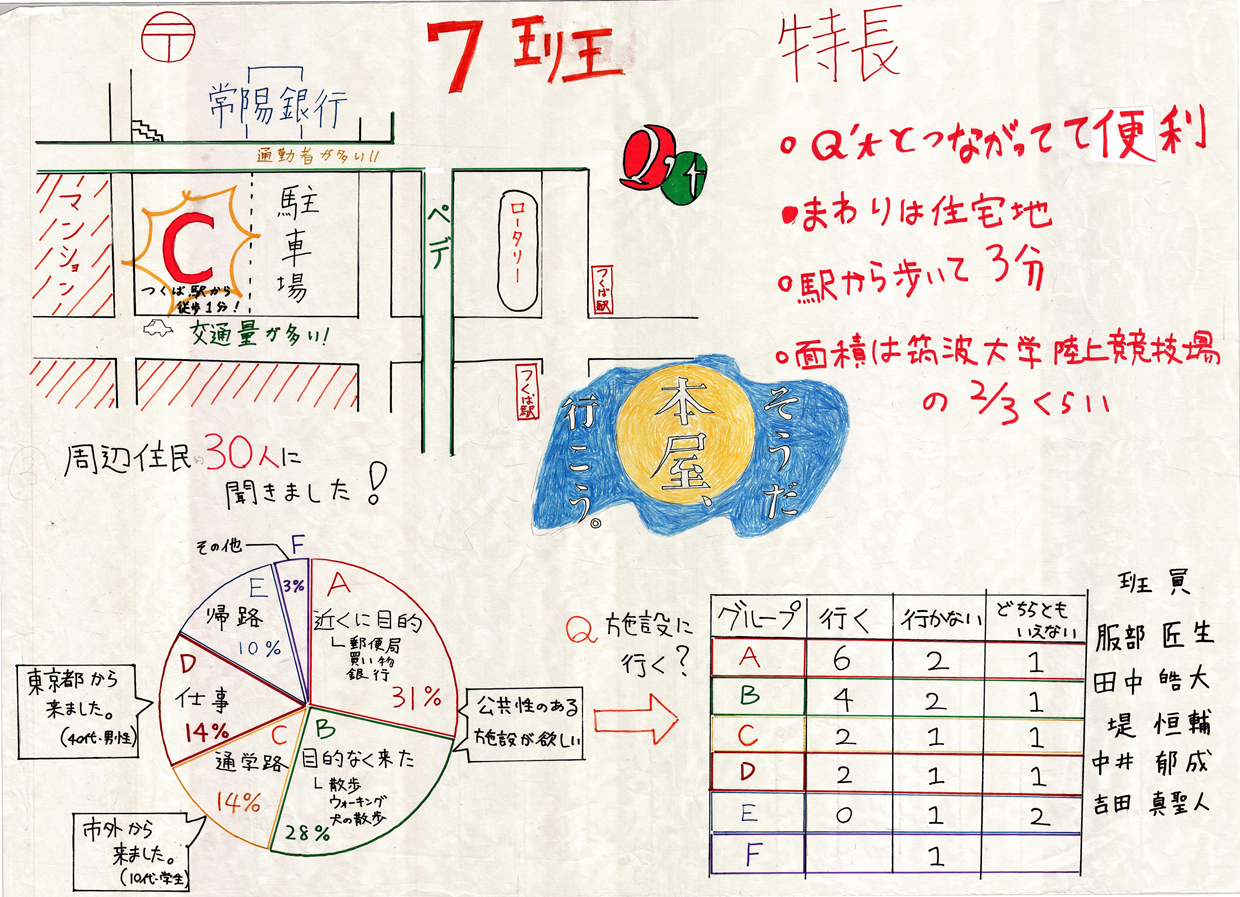 7班
〒
常陽銀行
通勤者が多い!!
マンション
C
つくば駅から
徒歩1分!
駐車場
ペデ
ロータリー
つくば駅
つくば駅
交通量が多い!
Q't
特長
Q'tとつながってて便利
まわりは住宅地
駅から歩いて3分
面積は筑波大学陸上競技場
の2/3くらい
そうだ
本屋、
行こう。
周辺住民30人に
聞きました!
A
近くに目的
郵便局
買い物
銀行
31%
B
目的なく来た
散歩
ウォーキング
犬の散歩
28%
C
通学路
14%
D
仕事
14%
E
帰路
10%
F
その他
3%
東京都から
来ました。
(40代・男性)
市外から
来ました。
(10代・学生)
公共性のある
施設が欲しい
Q 施設に
行く?
グループ 行く 行かない どちらとも
いえない
A 6 2 1
B 4 2 1
C 2 1 1
D 2 1 1
E 0 1 2
F 1
班員
服部 匠生
田中 皓大
堤 恒輔
中井 郁成
吉田 真聖人